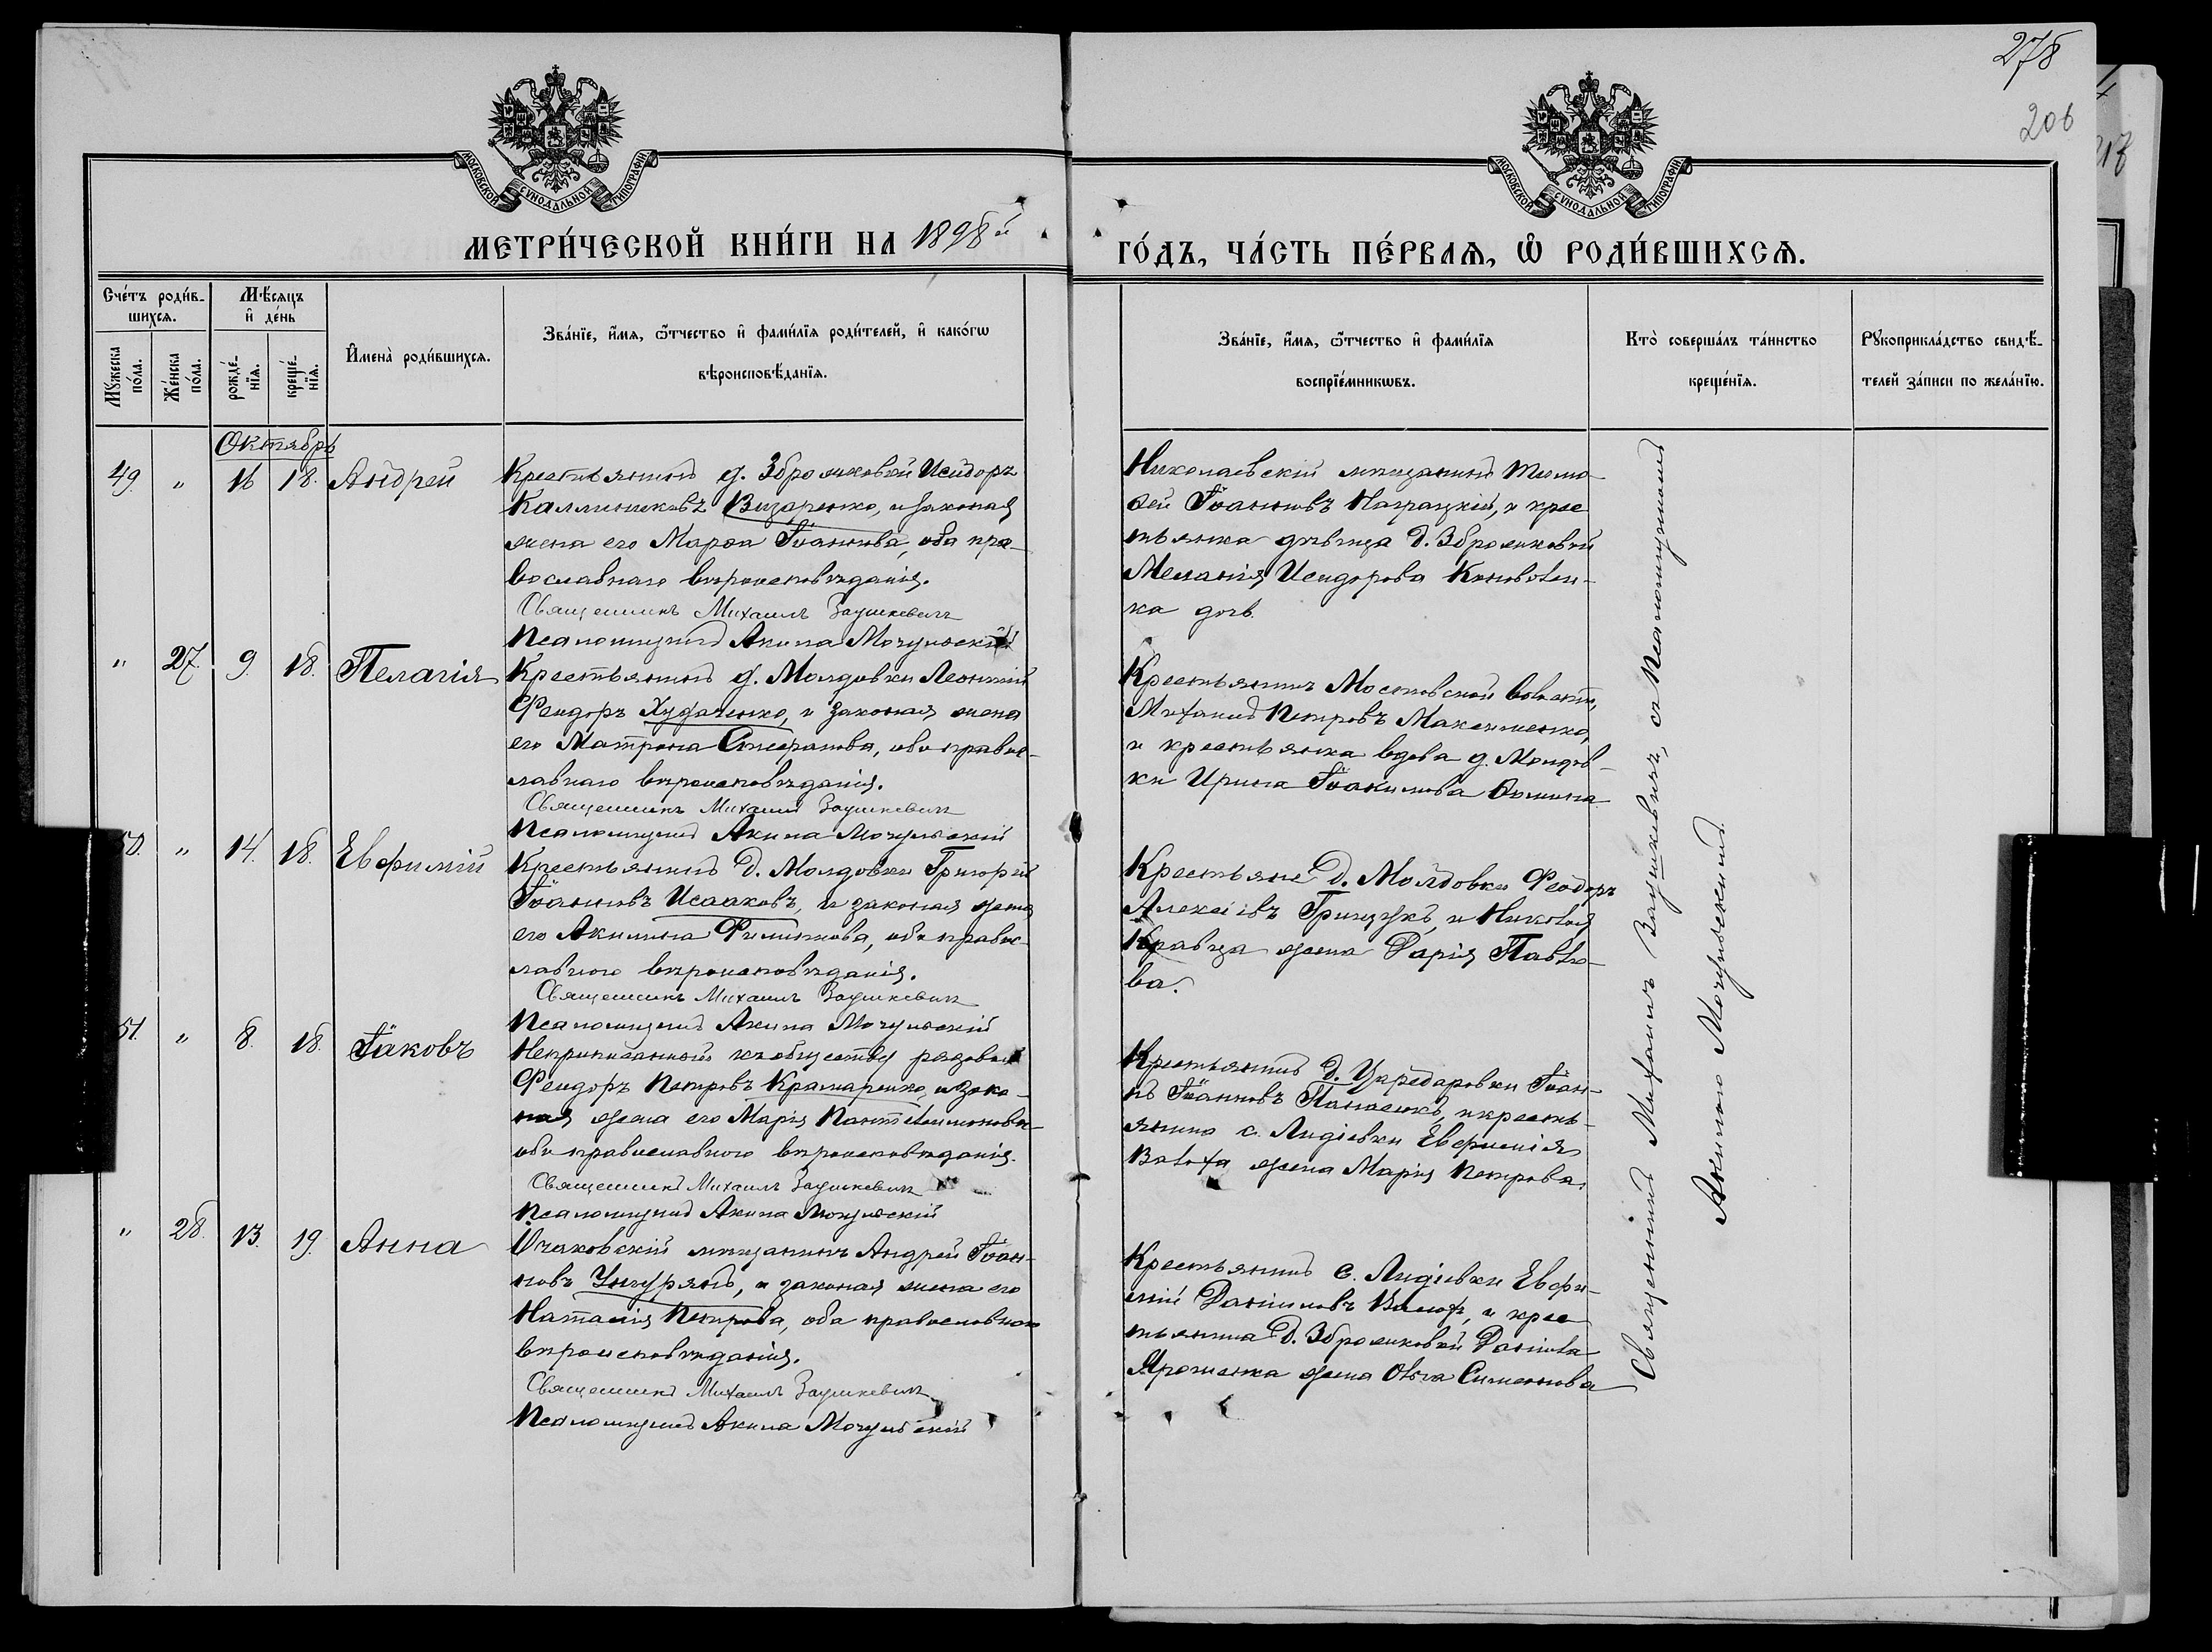 278
206
МОСКОВСКОЙ СУНОДАЛЬНОЙ ТИПОГРАФІИ
МОСКОВСКОЙ СУНОДАЛЬНОЙ ТИПОГРАФІИ
МЕТРИ́ЧЕСКОЙ КНИ́ГИ НА 1898й
ГО́ДЪ, ЧА́СТЬ ПЕ́РВАѦ, Ѡ҆ РОДИ́ВШИХСѦ.
Сче́тъ роди́в-
шихсѧ.
Мѣ́сяцъ
и҆ де́нь
И҆мена̀ роди́вшихсѧ.
Зва́нїе, и҆́мѧ, ѻ҆́тчество и҆ фами́лїѧ роди́телей, и҆ како́гѡ
вѣроисповѣ́данїѧ.
Мꙋ́жеска по́ла.
Же́нска по́ла.
рожде́-нїѧ.
креще́-нїѧ.
Зва́нїе, и҆́мѧ, ѻ҆́тчество и҆ фами́лїѧ
воспрїе́мникѡвъ.
Кто̀ соверша́лъ та́инство
креще́нїѧ.
Рꙋкоприкла́дство свидѣ́-
телей за́писи по жела́нїю.
Октябрь
49. " 16 18. Андрей
Крестьянинъ д. Збрсмиковой Исидоръ
Каллиниковъ Визаренко, и законая
жена его Марѳа Іоаннова, оба пра-
вославнаго вѣроисповѣданія.
Священникъ Михаилъ Заушкевичъ
Псаломщикъ Акила Мочульскій
Николаевскій мѣщанинъ Тимо-
ѳей Іоанновъ Награцкій, и крес
тьянка дѣвица д. Зброжковой
Меланія Исидорова Коновален-
ка дочь.
" 27. 9. 18. Пелагія
Крестьянинъ д. Молдовки Леонтій
Феодоръ Худаченко, и законая жена
его Матрона Стефанова, оба правос-
лавнаго вѣроисповѣданія.
Священникъ Михаилъ Заушкевичъ
Псаломщикъ Акила Мочульскій
Крестьянинъ Московской волости,
Михаилъ Петровъ Максименко,
и крестьянка вдова д. Молдов-
ки Ирина Іоакимова Ѳомина
50. " 14. 18. Евфимій
Крестьянинъ д. Молдовки Григорій
Іоанновъ Исааковъ, и законая жена
его Акилина Филиппова, оба правос-
лавного вѣроисповѣданія.
Священникъ Михаилъ Заушкевичъ
Псаломщикъ Акила Мочульскій
Крестьяне д. Молдовки Феодоръ
Алексіевъ Грищукъ, и Николая
Кравца жена Дарія Павло-
ва.
51. " 8. 18. Іаковъ
Неприписанный къ обществу рядовой
Феодоръ Петровъ Крамаренко, и зако-
ная жена его Марія Пантелеимонова
оба православного вѣроисповѣданія.
Священникъ Михаилъ Заушкевичъ
Псаломщикъ Акила Мочульскій
Крестьянинъ д. Царедаровки Іоан-
нъ Іоанновъ Панасюкъ, и кресть-
янина с. Лидіевки Евфимія
Волоха жена Марія Петрова.
" 28. 13. 19. Анна
Очаковскій мѣщанинъ Андрей Іоан-
новъ Унгурянъ, и законая жена его
Наталія Петрова, оба православного
вѣроисповѣданія.
Священникъ Михаилъ Заушкевичъ
Псаломщикъ Акила Мочульскій
Крестьянинъ с. Лидіевки Евфи-
мій Даніиловъ Волохъ, и крес
тьянина д. Зброжковой Даніила
Ярошенка жена Ольга Симеонова
Священникъ Михаилъ Заушкевичъ, съ Псаломщикомъ
Акилою Мочульскимъ.